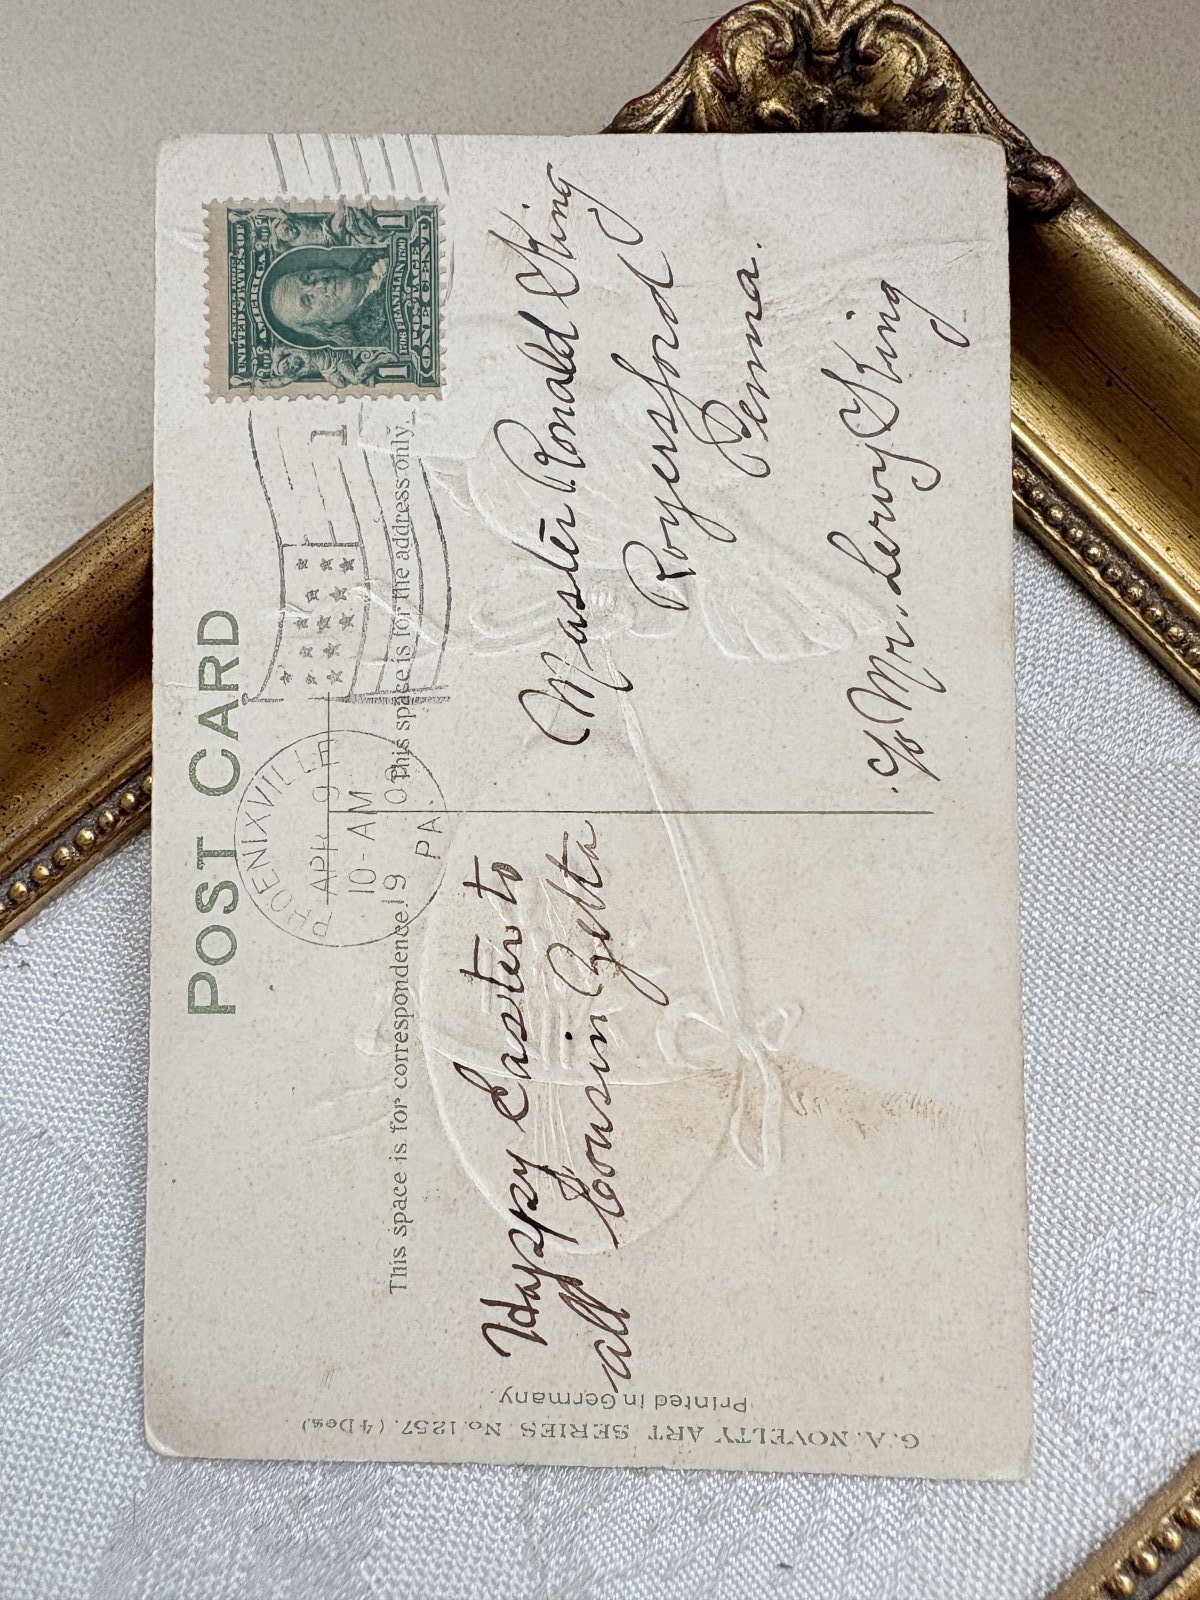 POST CARD
UNITED STATES OF
AMERICA
1706 FRANKLIN 1790
POSTAGE
ONE CENT
1 1
1
PHOENIXVILLE
APR 9
10-AM
PA.
This space is for correspondence.
This space is for the address only.
Happy Easter to
all Cousin Zetta
Master Ronald King
Royersford
Penna.
c/o Mr. Leroy King
G. A. NOVELTY ART SERIES No. 1257. (4 Des.)
Printed in Germany